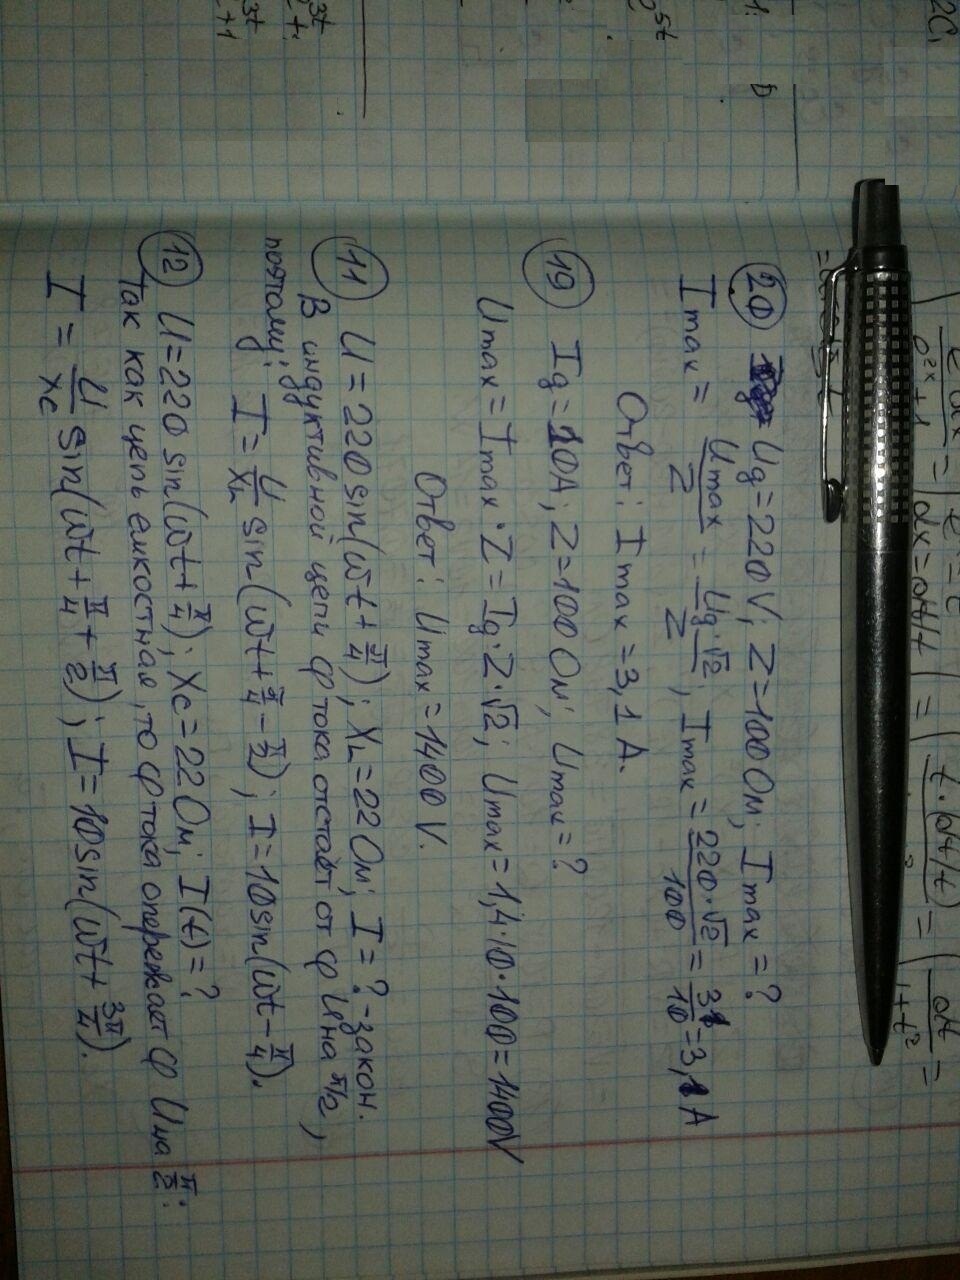 20 Ug=220V; Z=100 Ом; Imax=?
Imax = Umax/Z = Ug·√2/Z; Imax = 220·√2/100 = 31/10 = 3,1 A
Ответ: Imax = 3,1 A.
19 Ig=10A; Z=100 Ом; Umax=?
Umax = Imax·Z = Ig·Z·√2; Umax = 1,4·10·100 = 1400V
Ответ: Umax = 1400 V.
11 U=220 sin(ωt+π/4); XL=22 Ом; I=? - закон.
В индуктивной цепи φ тока отстаёт от φ U на π/2,
поэтому: I = U/XL sin(ωt+π/4-π/2); I=10sin(ωt-π/4).
12 U=220 sin(ωt+π/4); Xc=22 Ом; I(t)=?
Так как цепь ёмкостная, то φ тока опережает φ U на π/2:
I = U/Xc sin(ωt+π/4+π/2); I=10sin(ωt+3π/4).